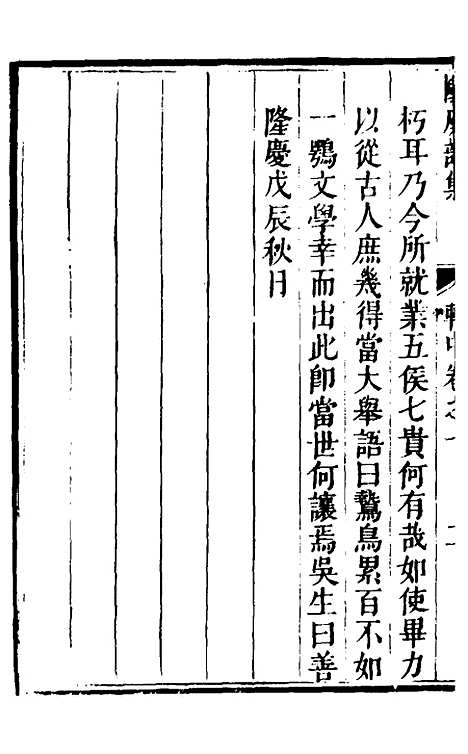 朽耳乃今所就業五侯七貴何有哉如使畢力
以從古人庶幾得當大舉語曰鷙鳥累百不如
一鶚文學幸而出此卽當世何讓焉吳生曰善
隆慶戊辰秋日